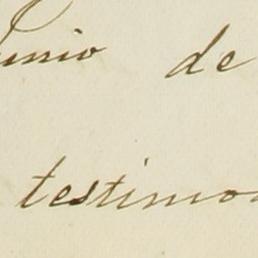 Junio de
testimo